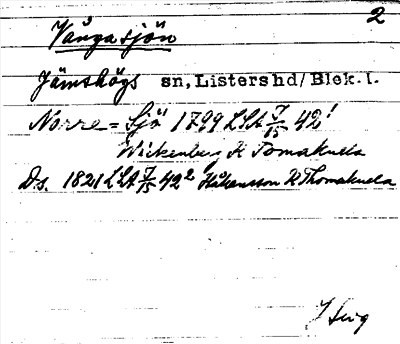 2
Vångasjön
Jämshögs sn, Listers hd/Blek. l.
Norre=Sjö 1799 LSA J/15 42¹
Wickenberg K Tomakulla
Ds. 1821 LSA J/15 42² Håkansson K Thomakulla